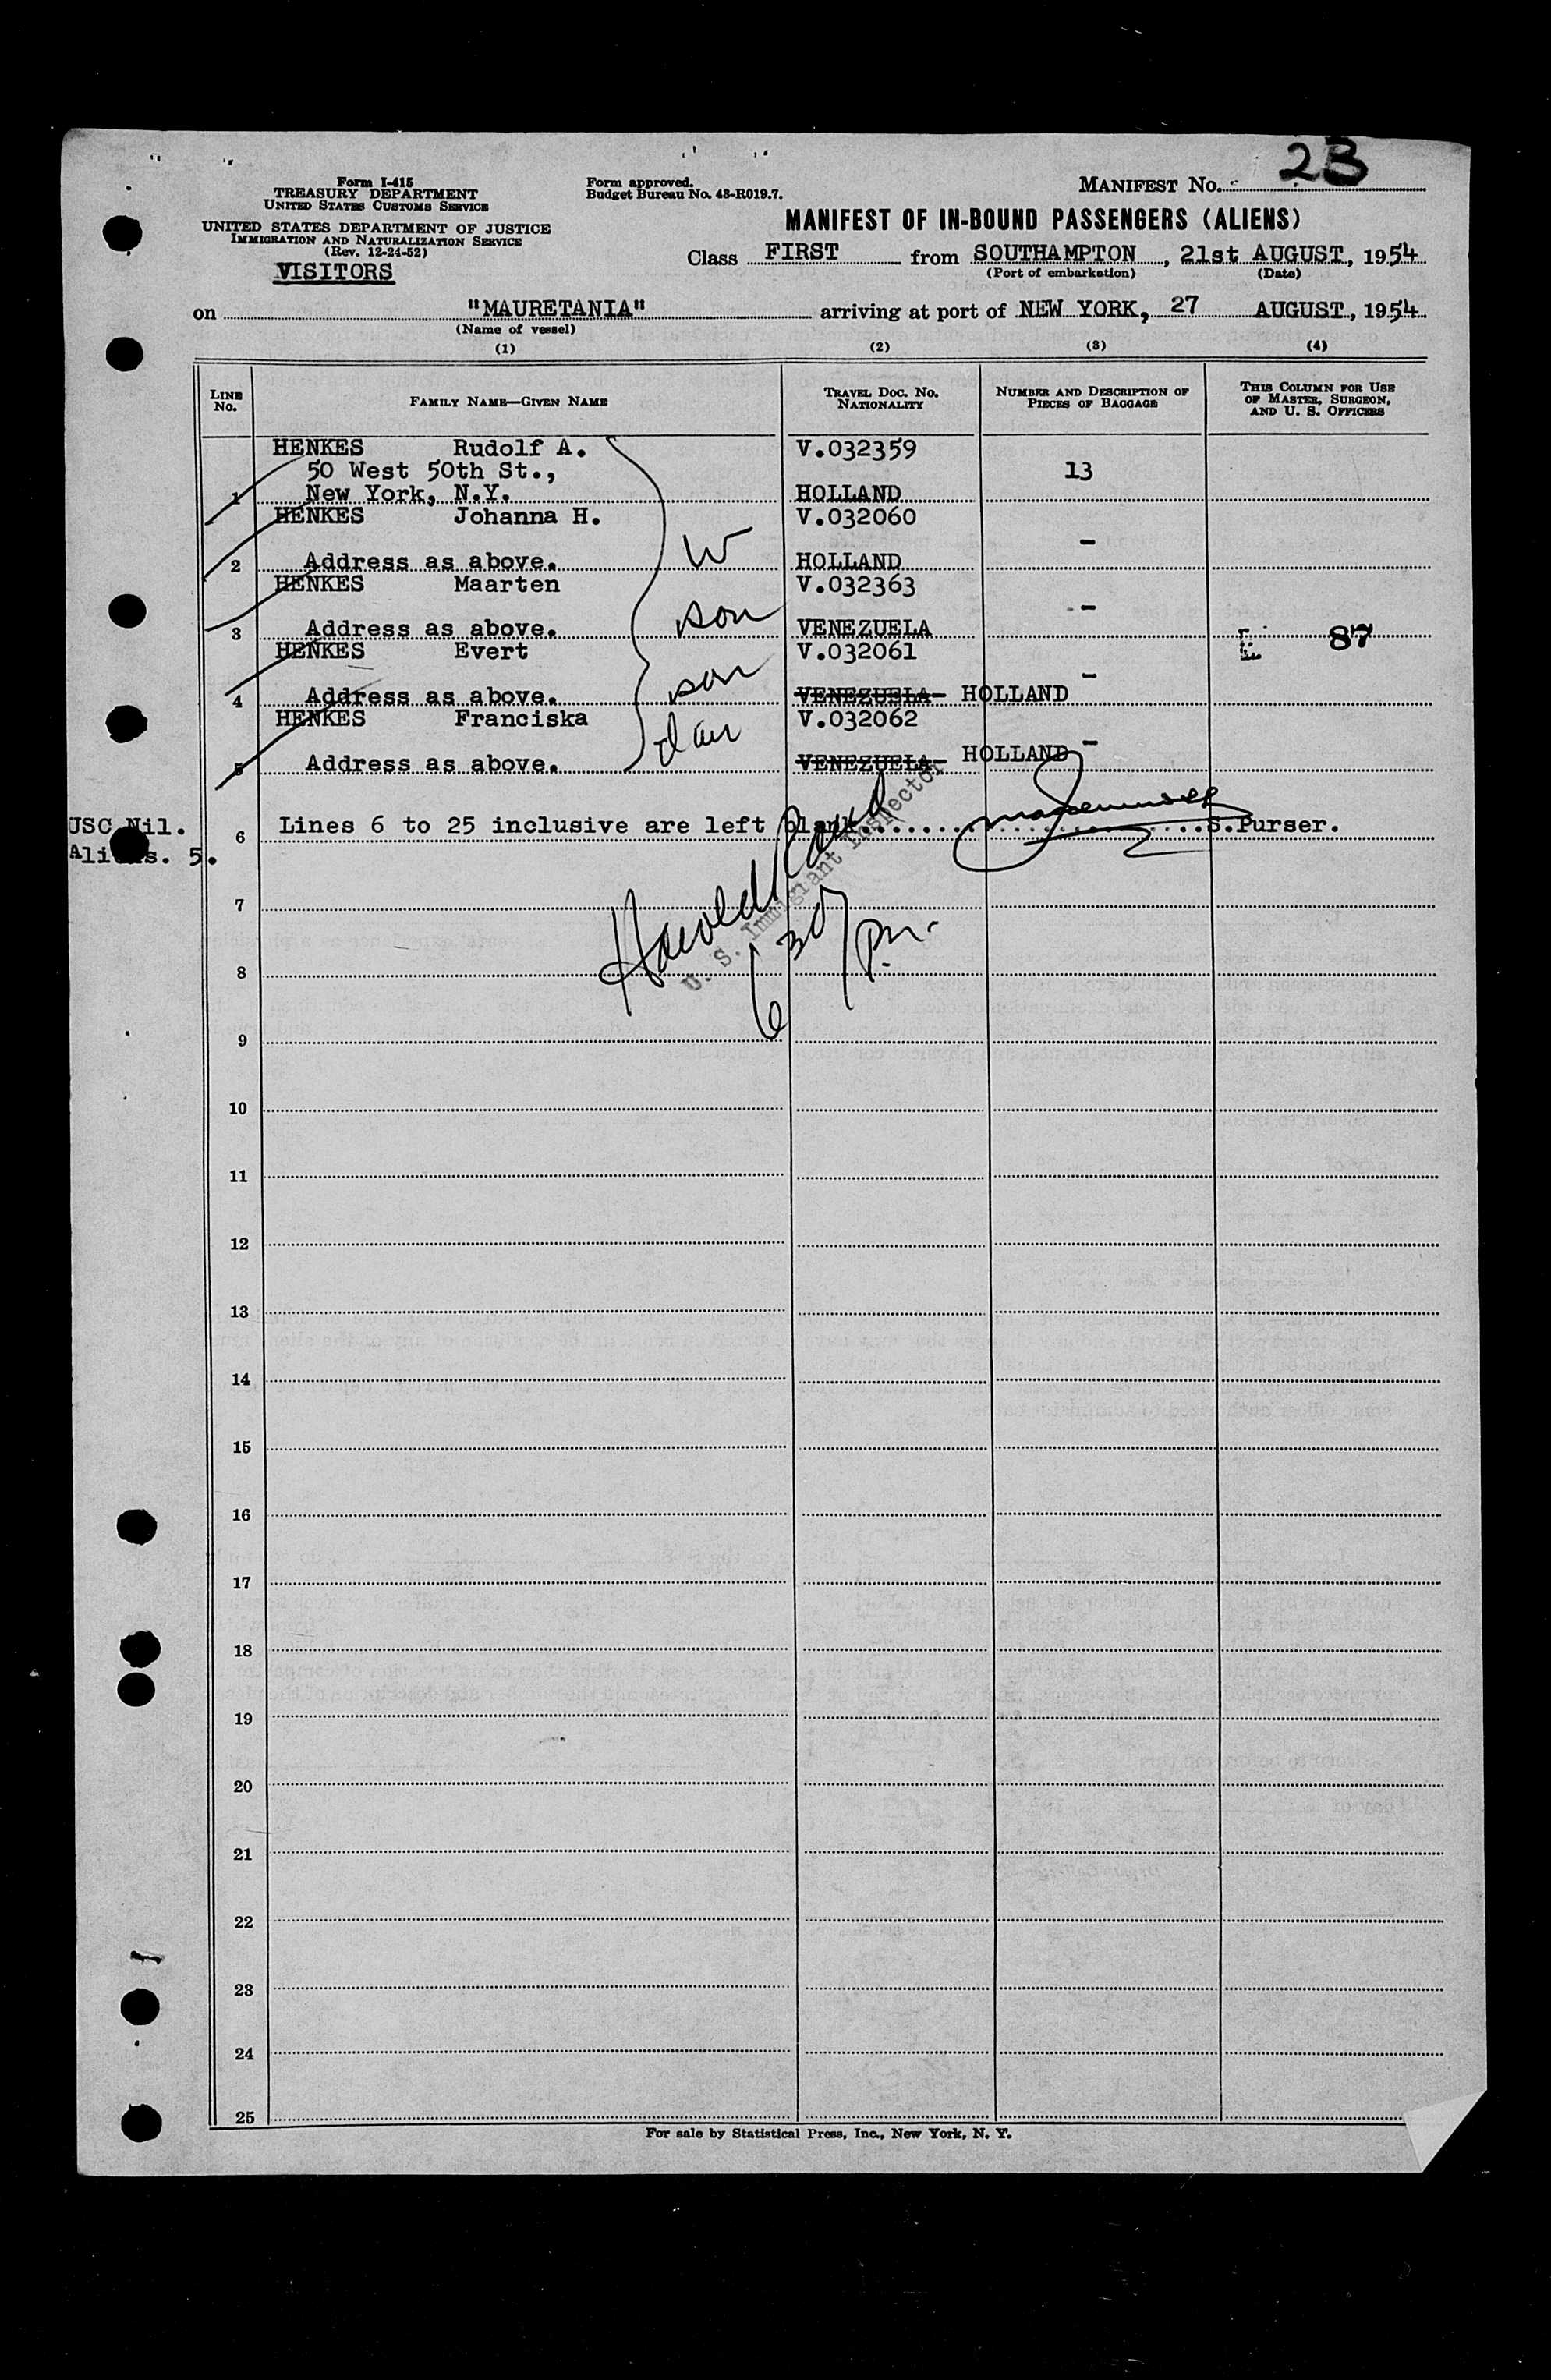 23
Form I-415
TREASURY DEPARTMENT
UNITED STATES CUSTOMS SERVICE
UNITED STATES DEPARTMENT OF JUSTICE
IMMIGRATION AND NATURALIZATION SERVICE
(Rev. 12-24-52)
VISITORS
Form approved.
Budget Bureau No. 43-R019.7.
MANIFEST No.
MANIFEST OF IN-BOUND PASSENGERS (ALIENS)
Class FIRST from SOUTHAMPTON, 21st AUGUST, 1954
(Port of embarkation) (Date)
on "MAURETANIA" arriving at port of NEW YORK, 27 AUGUST, 1954
(Name of vessel)
(1) (2) (3) (4)
LINE No. FAMILY NAME—GIVEN NAME TRAVEL DOC. NO. NATIONALITY NUMBER AND DESCRIPTION OF PIECES OF BAGGAGE THIS COLUMN FOR USE OF MASTER, SURGEON, AND U. S. OFFICERS
HENKES Rudolf A. V.032359
50 West 50th St., 13
1 New York, N.Y. HOLLAND
HENKES Johanna H. V.032060
W -
2 Address as above. HOLLAND
HENKES Maarten V.032363
son -
3 Address as above. VENEZUELA E 87
HENKES Evert V.032061
son -
4 Address as above. VENEZUELA- HOLLAND
HENKES Franciska V.032062
dau -
5 Address as above. VENEZUELA- HOLLAND
USC Nil.
Aliens. 5.
6 Lines 6 to 25 inclusive are left blank. S.Purser.
Harold
U. S. Immigrant Inspector
6 30 pm.
7
8
9
10
11
12
13
14
15
16
17
18
19
20
21
22
23
24
25
For sale by Statistical Press, Inc., New York, N. Y.